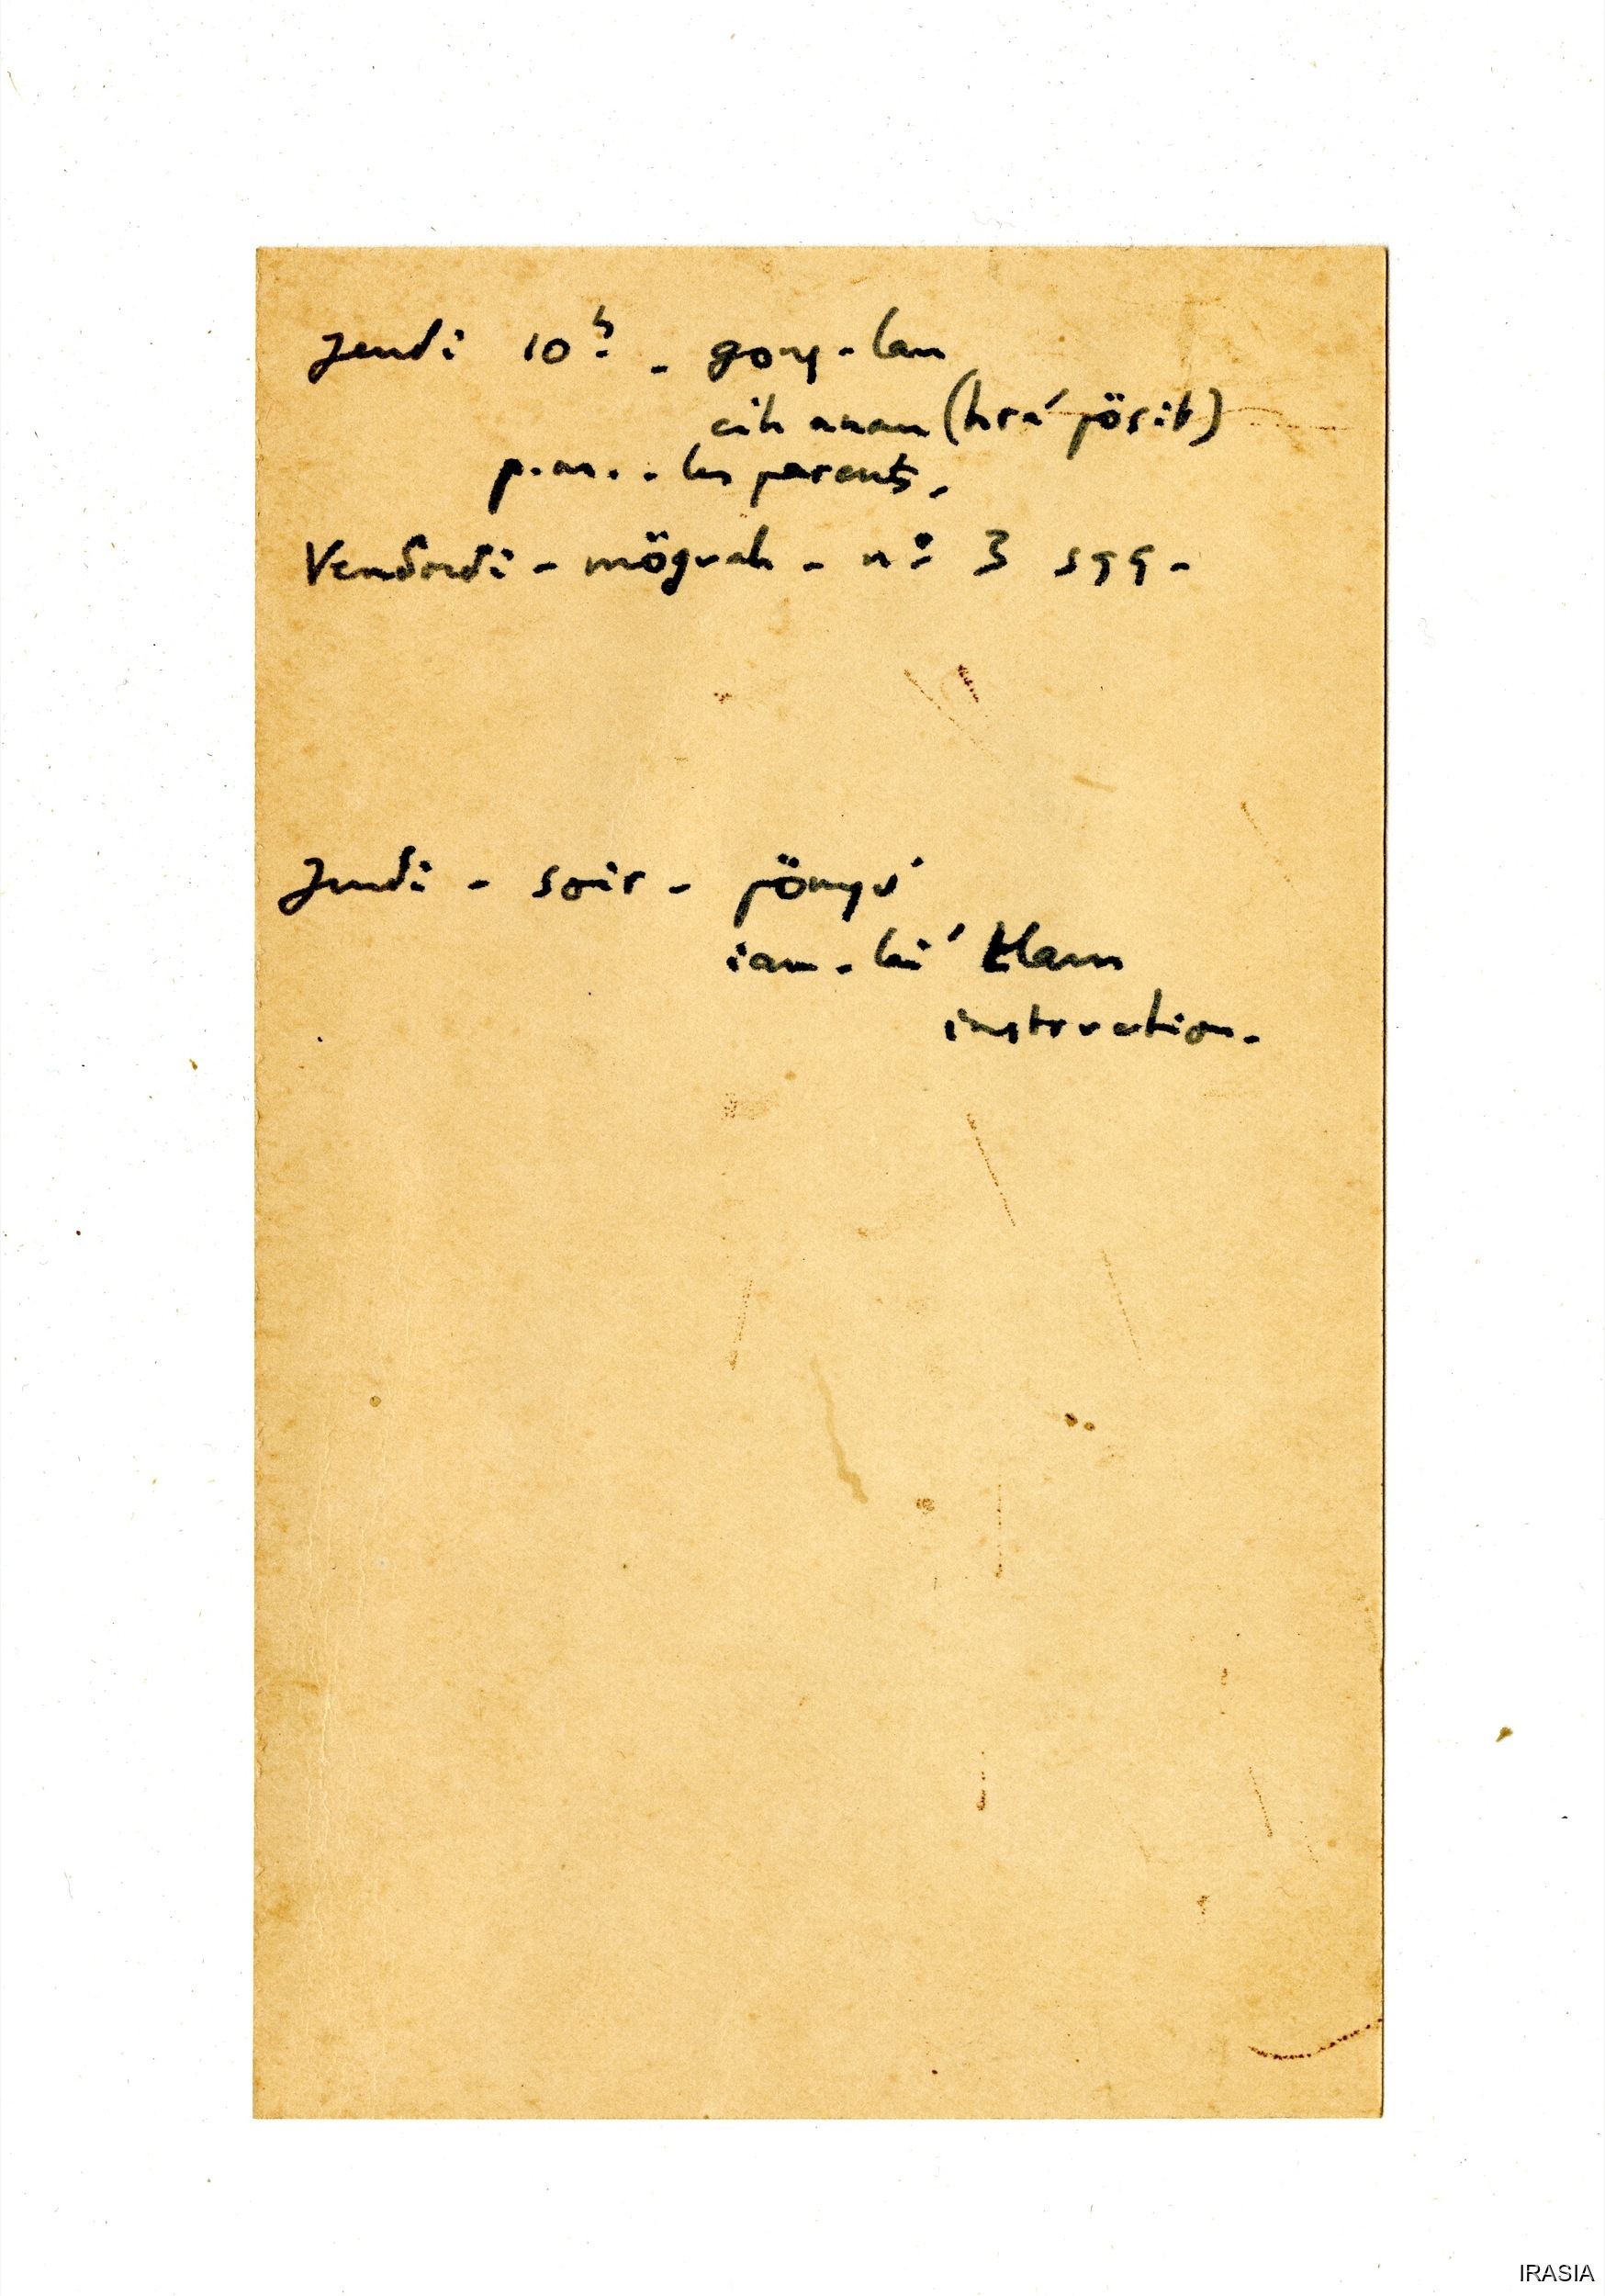 Jeudi 10h. - gong-lan
cih anan (hrá pösit)
p.m. - les parents.
Vendredi - mögvah - nº 3 sqq -
Jeudi - soir - pöngỏ
iam - lài klam
instruction.
IRASIA